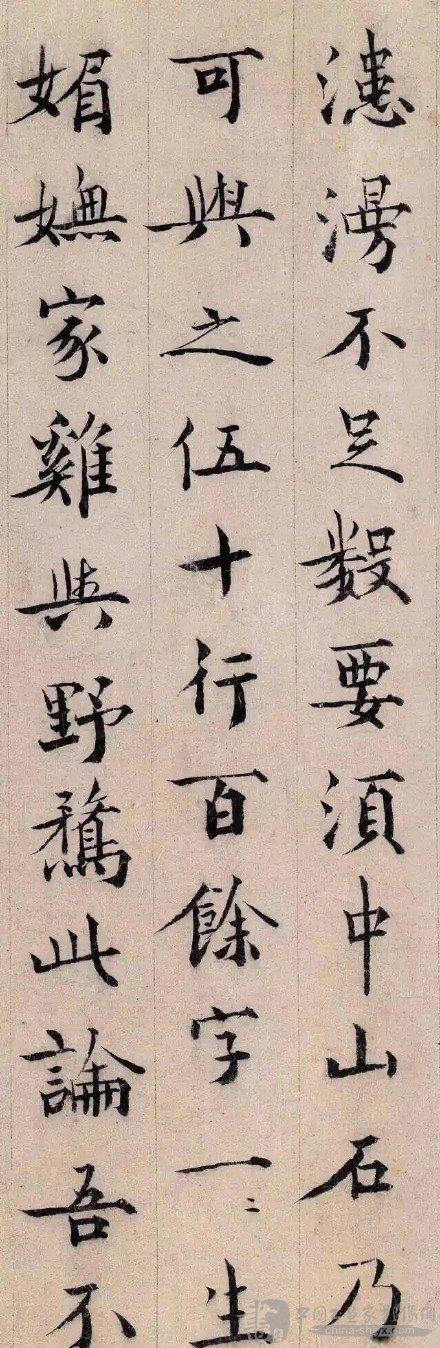 漶漫不足數要須中山石乃
可與之伍十行百餘字一〻生
媚嫵家雞與野鶩此論吾不